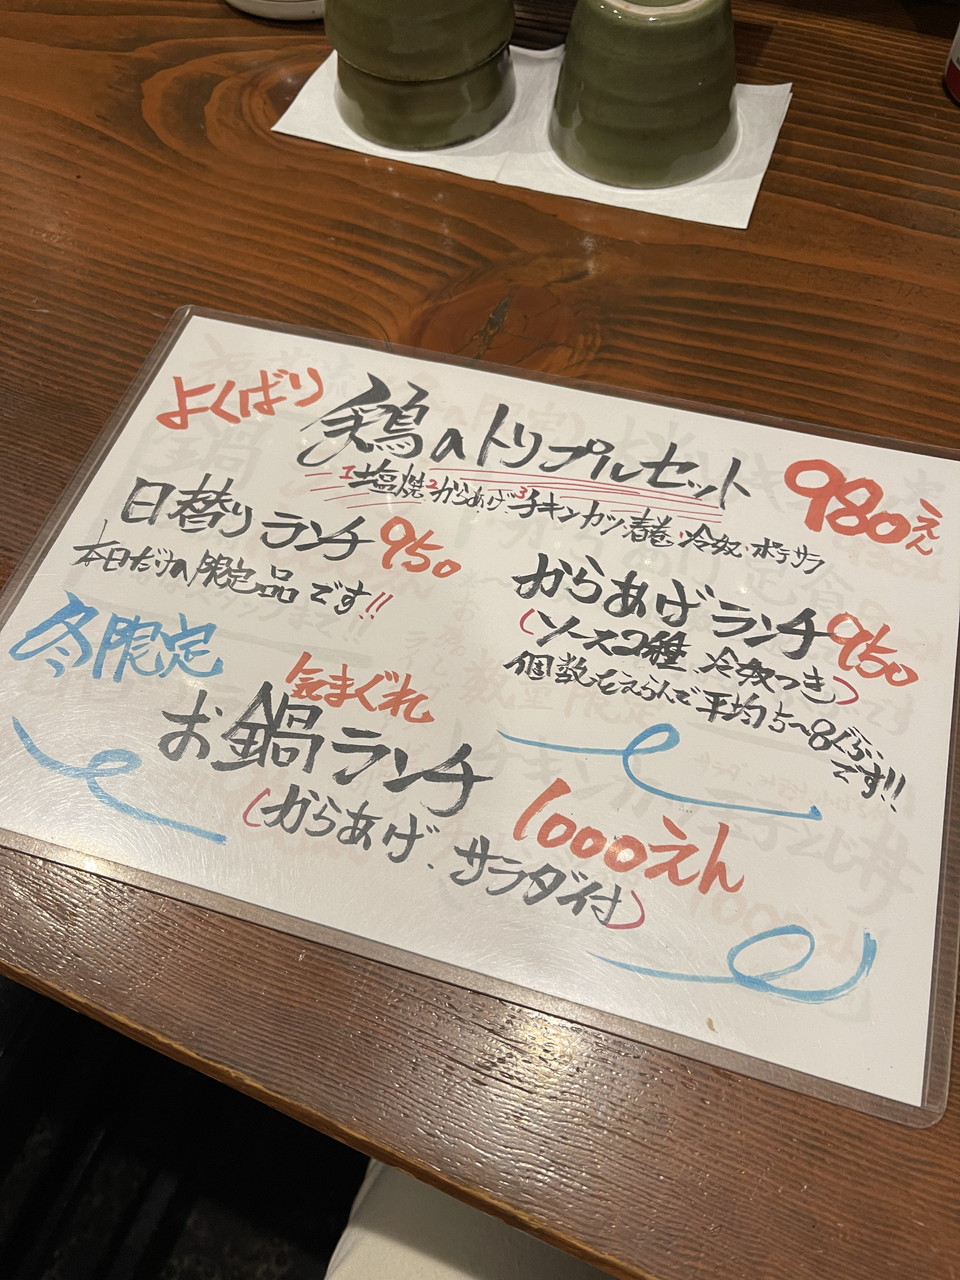 よくばり 鶏のトリプルセット 980えん
1塩焼 2からあげ 3チキンカツ、春巻、冷奴、ポテサラ
日替りランチ 950
本日だけの限定品です!!
からあげランチ 950
(ソース2種、冷奴つき)
個数をえらんで平均5〜8くらい
です!!
冬限定
気まぐれ
お鍋ランチ
1000えん
(からあげ、サラダ付)